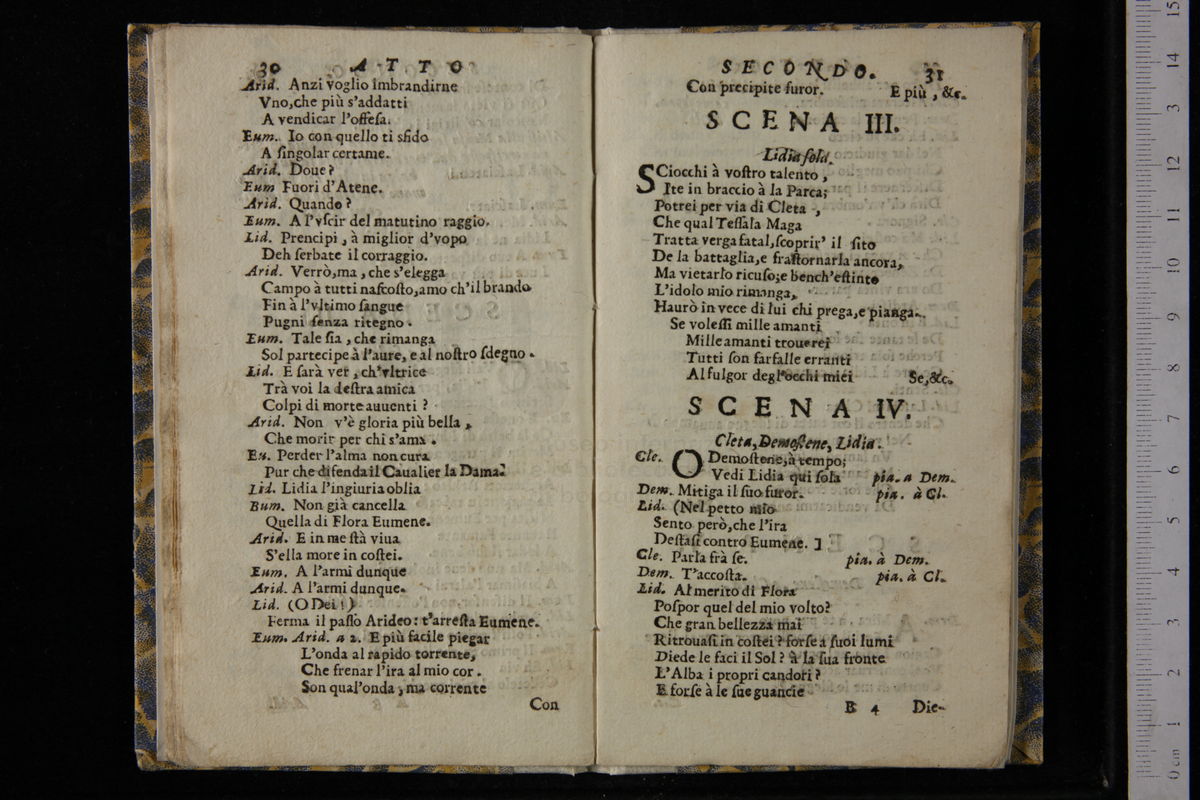 30 ATTO
Arid. Anzi voglio imbrandirne
Vno,che più s'addatti
A vendicar l'offeſa.
Eum. Io con quello ti sfido
A ſingolar certame.
Arid. Doue?
Eum Fuori d'Atene.
Arid. Quando?
Eum. A l'vſcir del matutino raggio.
Lid. Prencipi, à miglior d'vopo
Deh ſerbate il corraggio.
Arid. Verrò,ma, che s'elegga
Campo à tutti naſcoſto,amo ch'il brando
Fin à l'vltimo ſangue
Pugni ſenza ritegno.
Eum. Tale ſia, che rimanga
Sol partecipe à l'aure, e al noſtro ſdegno.
Lid. E ſarà ver, ch'vltrice
Trà voi la deſtra amica
Colpi di morte auuenti?
Arid. Non v'è gloria più bella,
Che morir per chi s'ama.
Eu. Perder l'alma non cura
Pur che difenda il Caualier la Dama.
Lid. Lidia l'ingiuria oblia
Bum. Non già cancella
Quella di Flora Eumene.
Arid. E in me ſtà viua
S'ella more in coſtei.
Eum. A l'armi dunque
Arid. A l'armi dunque.
Lid. (O Dei!)
Ferma il paſſo Arideo: t'arreſta Eumene.
Eum. Arid. a 2. E più facile piegar
L'onda al rapido torrente,
Che frenar l'ira al mio cor.
Son qual'onda, ma corrente
Con
SECONDO. 31
Con precipite furor. E più, &c.
SCENA III.
Lidia ſola.
SCiocchi à voſtro talento,
Ite in braccio à la Parca;
Potrei per via di Cleta,
Che qual Teſſala Maga
Tratta verga fatal,ſcoprir' il ſito
De la battaglia,e fraſtornarla ancora,
Ma vietarlo ricuſo;e bench'eſtinto
L'idolo mio rimanga,
Haurò in vece di lui chi prega,e pianga.
Se voleſſi mille amanti
Mille amanti trouerei
Tutti ſon farfalle erranti
Al fulgor degl'occhi miei Se,&c.
SCENA IV.
Cleta, Demoſtene, Lidia.
Cle. O Demoſtene,à tempo;
Vedi Lidia qui ſola pia. a Dem.
Dem. Mitiga il ſuo furor. pia. à Cl.
Lid. (Nel petto mio
Sento però,che l'ira
Deſtaſi contro Eumene. ]
Cle. Parla frà ſe. pia. à Dem.
Dem. T'accoſta. pia. à Cl.
Lid. Al merito di Flora
Poſpor quel del mio volto?
Che gran bellezza mai
Ritrouaſi in coſtei? forſe a ſuoi lumi
Diede le faci il Sol? à la ſua fronte
L'Alba i propri candori?
E forſe à le ſue guancie
B 4 Die-